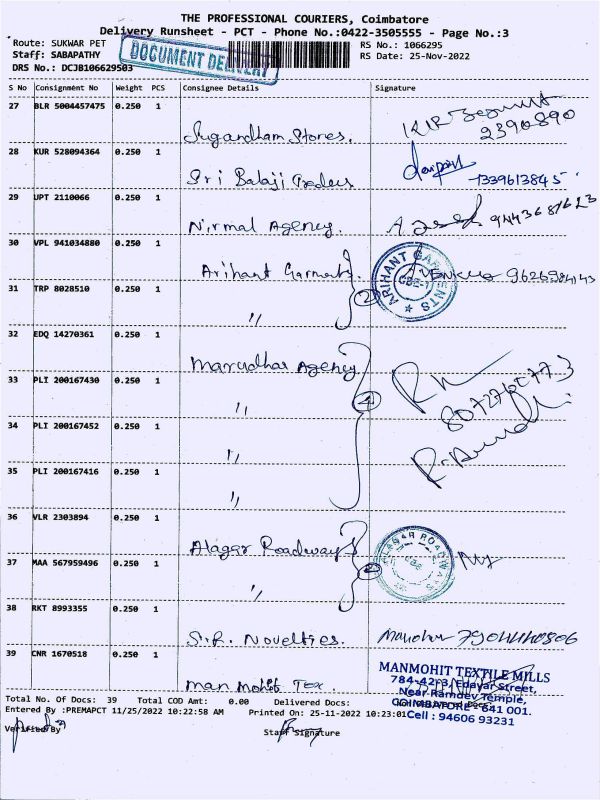 THE PROFESSIONAL COURIERS, Coimbatore
Delivery Runsheet - PCT - Phone No.:0422-3505555 - Page No.:3
Route: SUKWAR PET RS No.: 1066295
Staff: SABAPATHY RS Date: 25-Nov-2022
DRS No.: DCJB106629503
DOCUMENT DELIVERY
S No Consignment No Weight PCS Consignee Details Signature
27 BLR 5004457475 0.250 1
Sugandham Stores. 2390890
28 KUR 528094364 0.250 1
Sri Balaji Traders 1339613845
29 UPT 2110066 0.250 1
Nirmal Agency.
30 VPL 941034880 0.250 1
Arihant Garments
ARIHANT GARMENTS CBE-1
31 TRP 8028510 0.250 1 2
"
32 EDQ 14270361 0.250 1
Marudhar Agency
33 PLI 200167430 0.250 1
" 4
34 PLI 200167452 0.250 1
"
35 PLI 200167416 0.250 1
"
36 VLR 2303894 0.250 1
Alagar Roadways
ALAGAR ROADWAYS
37 MAA 567959496 0.250 1 2
"
38 RKT 8993355 0.250 1
S.R. Novelties. Manohar
39 CNR 1670518 0.250 1
man mohit Tex
MANMOHIT TEXTILE MILLS
784-42-3, Edayar Street,
Near Ramdev Temple,
COIMBATORE - 641 001.
Cell : 94606 93231
Total No. Of Docs: 39 Total COD Amt: 0.00 Delivered Docs:
Entered By :PREMAPCT 11/25/2022 10:22:58 AM Printed On: 25-11-2022 10:23:01
Verified By Staff Signature